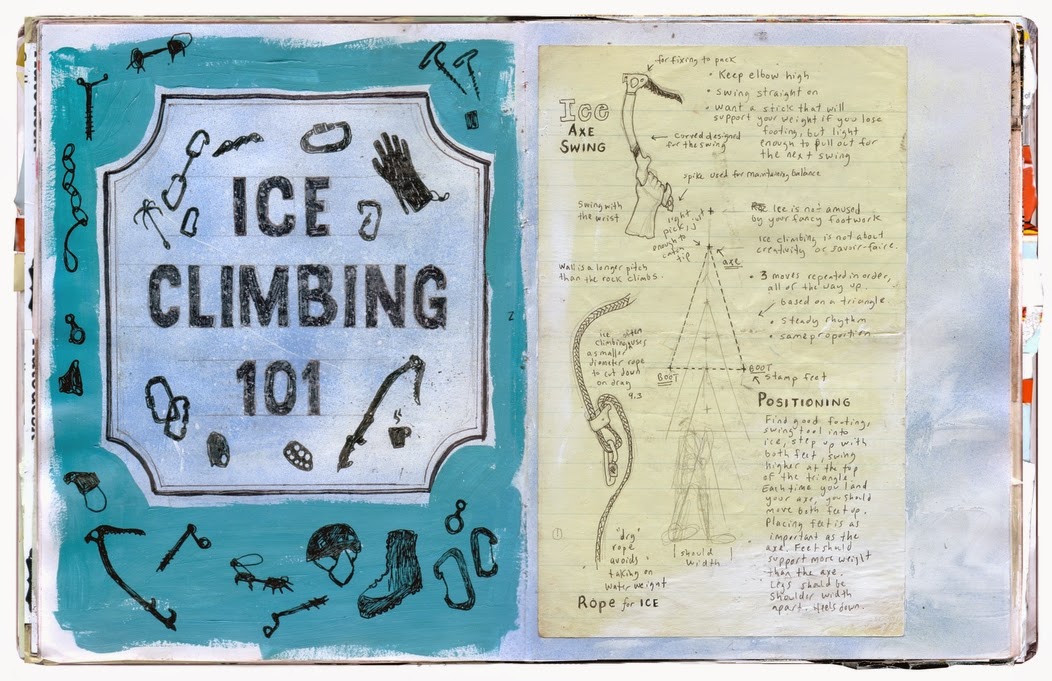 ICE
CLIMBING
101
Ice
AXE
SWING
for fixing to pack
• Keep elbow high
• swing straight on
• want a stick that will
support your weight if you lose
footing, but light
enough to pull out for
the next swing
curved designed
for the swing
spike used for maintaining balance
Swing with
the wrist
light
pick, just
enough to
catch
tip
axe
Ice is not amused
by your fancy footwork
Ice climbing is not about
creativity or savoir-faire.
• 3 moves repeated in order,
all of the way up.
based on a triangle.
• steady rhythm
• same proportion
Wall is a longer pitch
than the rock climbs.
ice often
climbing uses
a smaller
diameter rope
to cut down
on drag
9.3
BOOT
BOOT
stamp feet
POSITIONING
Find good footing,
swing tool into
ice, step up with
both feet, swing
higher at the top
of the triangle.
Each time you land
your axe, you should
move both feet up.
Placing feet is as
important as the
axe. Feet should
support more weight
than the axe.
Legs should be
shoulder width
apart. Heels down.
"dry"
rope
avoids
taking on
water weight
should
width
Rope for ICE